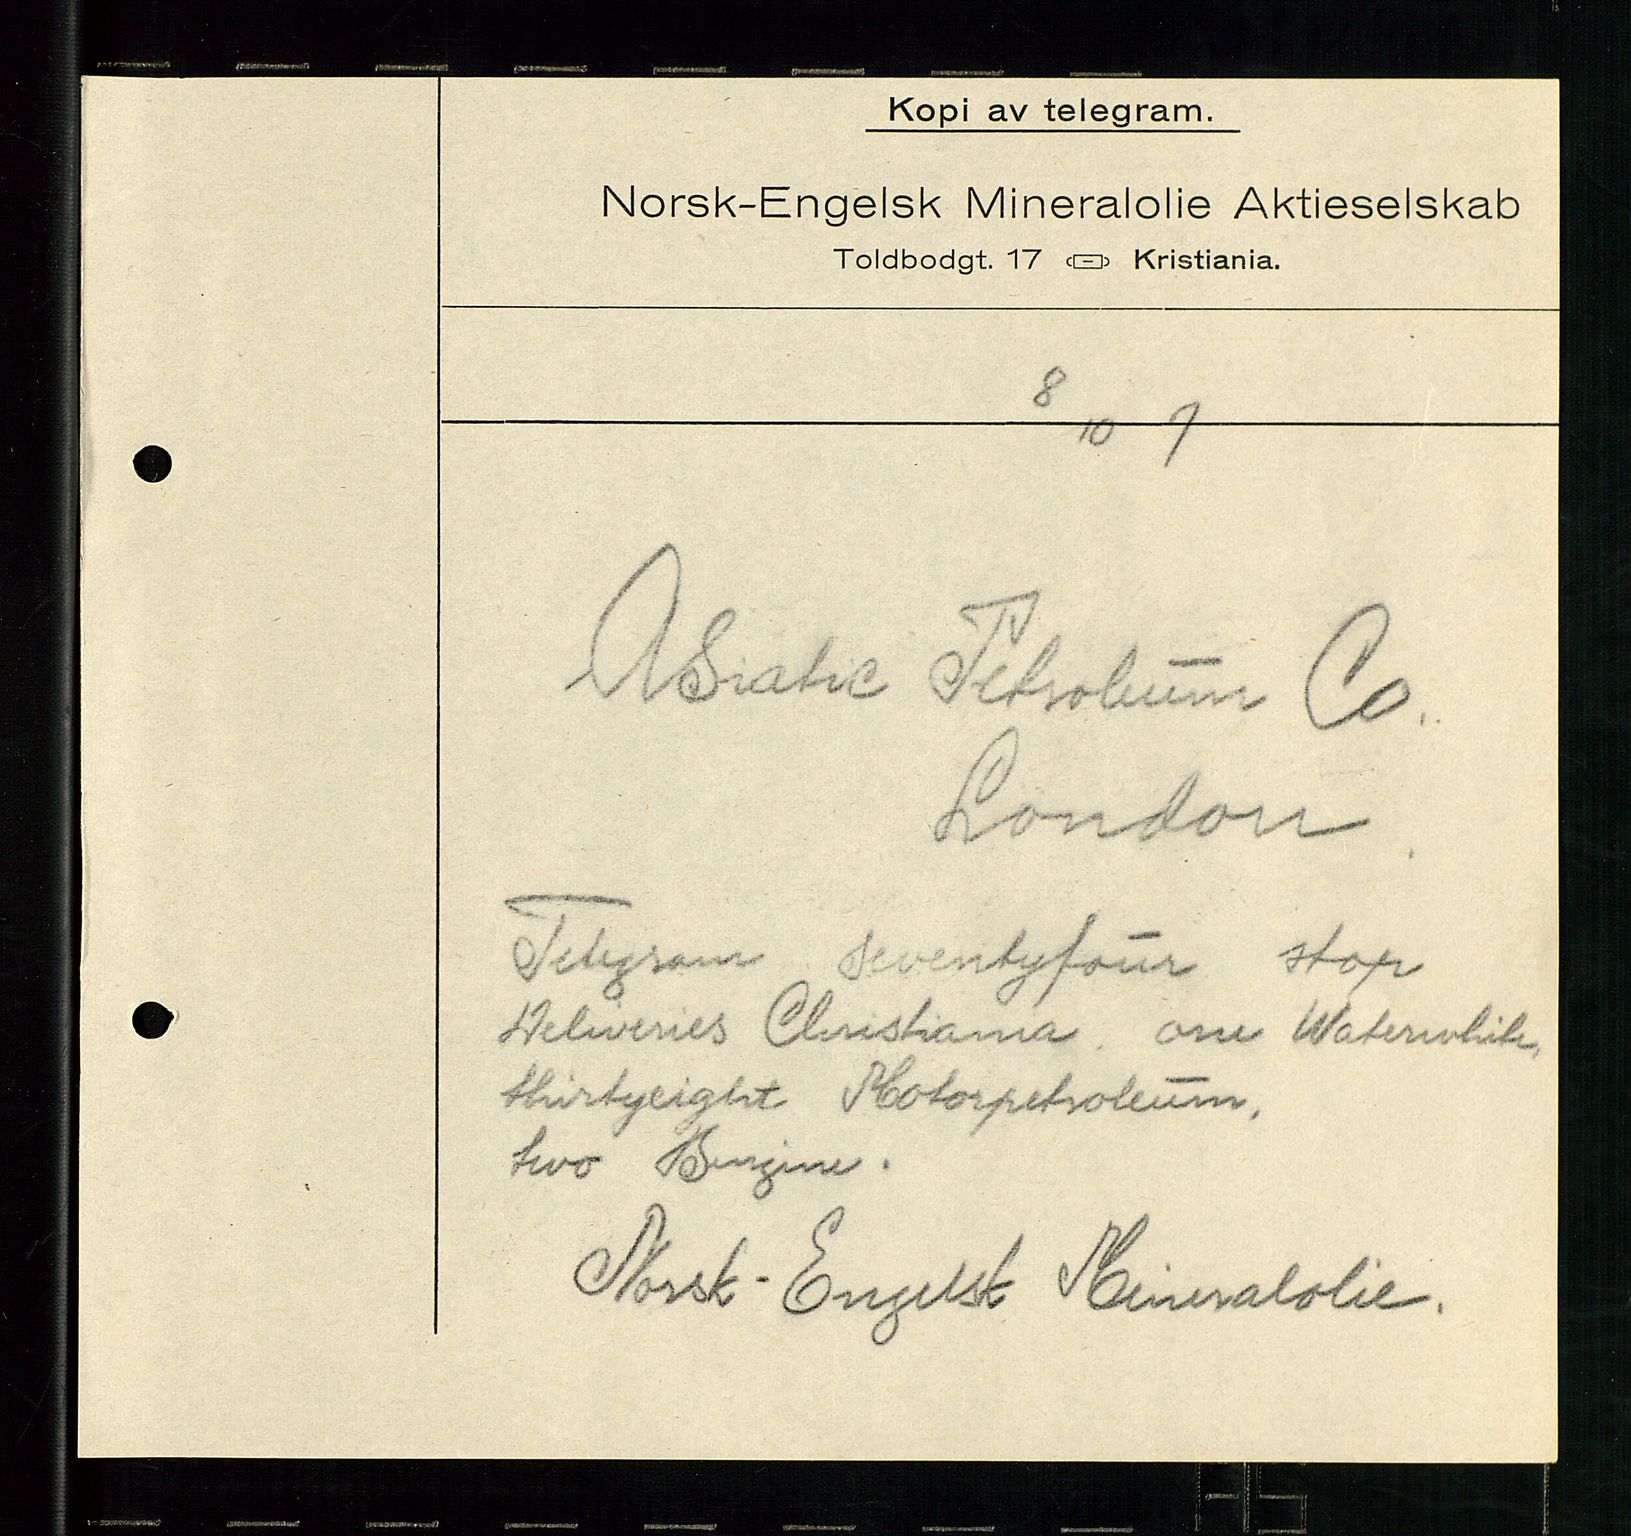 Kopi av telegram.
Norsk-Engelsk Mineralolie Aktieselskab
Toldbodgt. 17 Kristiania.
8/10 7
Asiatic Petroleum Co.
London
Telegram seventyfour stop
Deliveries Christiania one Waterwhite,
thirtyeight Motorpetroleum,
two Benzine.
Norsk-Engelsk Mineralolie.